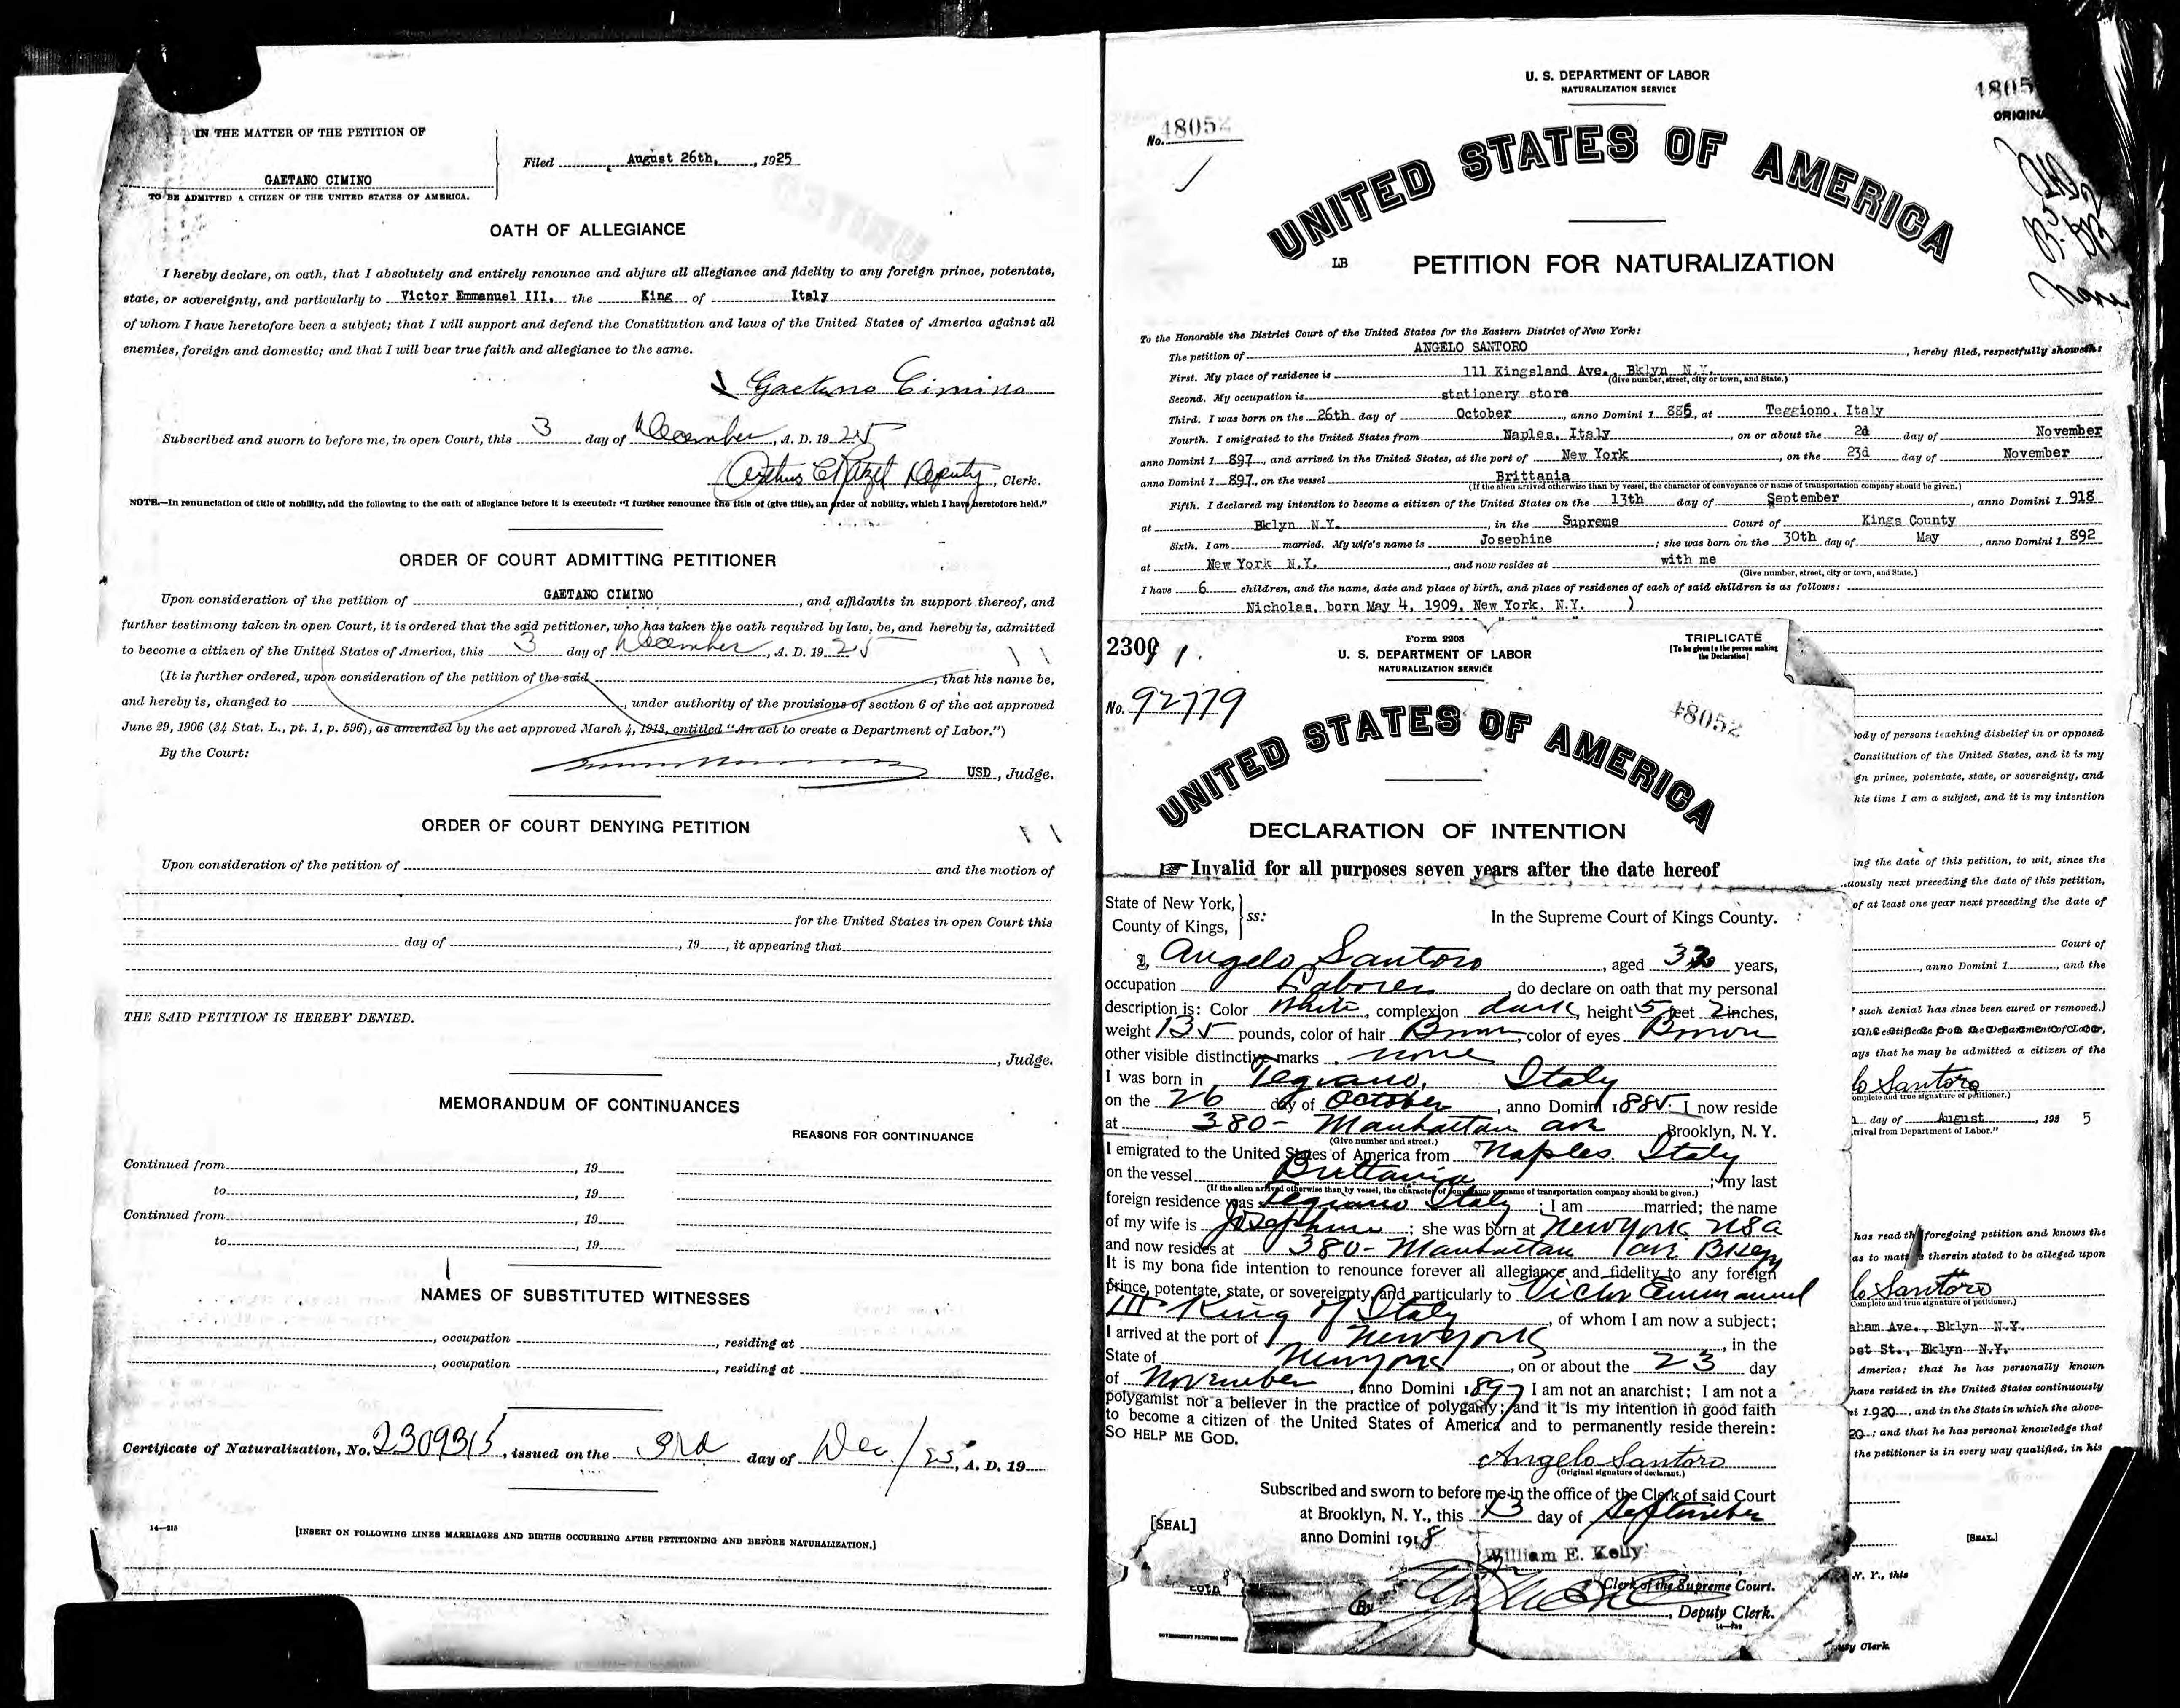 IN THE MATTER OF THE PETITION OF
GAETANO CIMINO
TO BE ADMITTED A CITIZEN OF THE UNITED STATES OF AMERICA.
Filed August 26th, , 1925
OATH OF ALLEGIANCE
I hereby declare, on oath, that I absolutely and entirely renounce and abjure all allegiance and fidelity to any foreign prince, potentate,
state, or sovereignty, and particularly to Victor Emmanuel III. the King of Italy
of whom I have heretofore been a subject; that I will support and defend the Constitution and laws of the United States of America against all
enemies, foreign and domestic; and that I will bear true faith and allegiance to the same.
Gaetano Cimino
Subscribed and sworn to before me, in open Court, this 3 day of December, A. D. 19 25
Deputy, Clerk.
NOTE.—In renunciation of title of nobility, add the following to the oath of allegiance before it is executed: "I further renounce the title of (give title), an order of nobility, which I have heretofore held."
ORDER OF COURT ADMITTING PETITIONER
Upon consideration of the petition of GAETANO CIMINO, and affidavits in support thereof, and
further testimony taken in open Court, it is ordered that the said petitioner, who has taken the oath required by law, be, and hereby is, admitted
to become a citizen of the United States of America, this 3 day of December, A. D. 19 25
(It is further ordered, upon consideration of the petition of the said , that his name be,
and hereby is, changed to , under authority of the provisions of section 6 of the act approved
June 29, 1906 (34 Stat. L., pt. 1, p. 596), as amended by the act approved March 4, 1913, entitled "An act to create a Department of Labor.")
By the Court:
USD , Judge.
ORDER OF COURT DENYING PETITION
Upon consideration of the petition of and the motion of
for the United States in open Court this
day of , 19 , it appearing that
THE SAID PETITION IS HEREBY DENIED.
, Judge.
MEMORANDUM OF CONTINUANCES
REASONS FOR CONTINUANCE
Continued from , 19
to , 19
Continued from , 19
to , 19
NAMES OF SUBSTITUTED WITNESSES
, occupation , residing at
, occupation , residing at
Certificate of Naturalization, No. 2309315, issued on the 3rd day of Dec / 25, A. D. 19
14—215
[INSERT ON FOLLOWING LINES MARRIAGES AND BIRTHS OCCURRING AFTER PETITIONING AND BEFORE NATURALIZATION.]
U. S. DEPARTMENT OF LABOR
NATURALIZATION SERVICE
No. 48052
4805
ORIGIN
UNITED STATES OF AMERICA
LB
PETITION FOR NATURALIZATION
To the Honorable the District Court of the United States for the Eastern District of New York:
The petition of ANGELO SANTORO, hereby filed, respectfully showeth:
First. My place of residence is 111 Kingsland Ave., Bklyn N.Y.
(Give number, street, city or town, and State.)
Second. My occupation is stationery store
Third. I was born on the 26th day of October, anno Domini 1 886, at Teggiono, Italy
Fourth. I emigrated to the United States from Naples, Italy, on or about the 2d day of November
anno Domini 1 897, and arrived in the United States, at the port of New York, on the 23d day of November
anno Domini 1 897, on the vessel Brittania
(If the alien arrived otherwise than by vessel, the character of conveyance or name of transportation company should be given.)
Fifth. I declared my intention to become a citizen of the United States on the 13th day of September, anno Domini 1 918
at Bklyn N.Y., in the Supreme Court of Kings County
Sixth. I am married. My wife's name is Josephine; she was born on the 30th day of May, anno Domini 1 892
at New York N.Y., and now resides at with me
(Give number, street, city or town, and State.)
I have 6 children, and the name, date and place of birth, and place of residence of each of said children is as follows:
Nicholas, born May 4, 1909, New York, N.Y. )
2300
Form 2203
U. S. DEPARTMENT OF LABOR
NATURALIZATION SERVICE
TRIPLICATE
[To be given to the person making
the Declaration]
No. 92779
48052
UNITED STATES OF AMERICA
DECLARATION OF INTENTION
Invalid for all purposes seven years after the date hereof
State of New York,
County of Kings,
ss:
In the Supreme Court of Kings County.
I, Angelo Santoro, aged 32 years,
occupation Laborer, do declare on oath that my personal
description is: Color White, complexion dark, height 5 feet 2 inches,
weight 135 pounds, color of hair Brown, color of eyes Brown
other visible distinctive marks none
I was born in Tegiano, Italy
on the 26 day of October, anno Domini 1885. I now reside
at 380- Manhattan ave Brooklyn, N. Y.
(Give number and street.)
I emigrated to the United States of America from Naples, Italy
on the vessel Brittania; my last
(If the alien arrived otherwise than by vessel, the character of conveyance or name of transportation company should be given.)
foreign residence was Tegiano Italy; I am married; the name
of my wife is Josephine; she was born at New York USA
and now resides at 380- Manhattan ave Bklyn
It is my bona fide intention to renounce forever all allegiance and fidelity to any foreign
prince, potentate, state, or sovereignty, and particularly to Victor Emmanuel
III King of Italy, of whom I am now a subject;
I arrived at the port of New York, in the
State of New York, on or about the 23 day
of November, anno Domini 1897 I am not an anarchist; I am not a
polygamist nor a believer in the practice of polygamy; and it is my intention in good faith
to become a citizen of the United States of America and to permanently reside therein:
SO HELP ME GOD.
Angelo Santoro
(Original signature of declarant.)
Subscribed and sworn to before me in the office of the Clerk of said Court
[SEAL]
at Brooklyn, N. Y., this 13 day of September
anno Domini 1918
William E. Kelly
Clerk of the Supreme Court.
By , Deputy Clerk.
GOVERNMENT PRINTING OFFICE
body of persons teaching disbelief in or opposed
Constitution of the United States, and it is my
gn prince, potentate, state, or sovereignty, and
his time I am a subject, and it is my intention
ing the date of this petition, to wit, since the
uously next preceding the date of this petition,
of at least one year next preceding the date of
Court of
, anno Domini 1 , and the
such denial has since been cured or removed.)
the certificate from the Department of Labor,
ays that he may be admitted a citizen of the
lo Santoro
omplete and true signature of petitioner.)
day of August, 192 5
rrival from Department of Labor."
has read the foregoing petition and knows the
as to matters therein stated to be alleged upon
lo Santoro
Complete and true signature of petitioner.)
aham Ave., Bklyn N.Y.
ost St., Bklyn N.Y.
America; that he has personally known
have resided in the United States continuously
ni 1 920, and in the State in which the above-
20; and that he has personal knowledge that
the petitioner is in every way qualified, in his
[SEAL.]
N. Y., this
ty Clerk